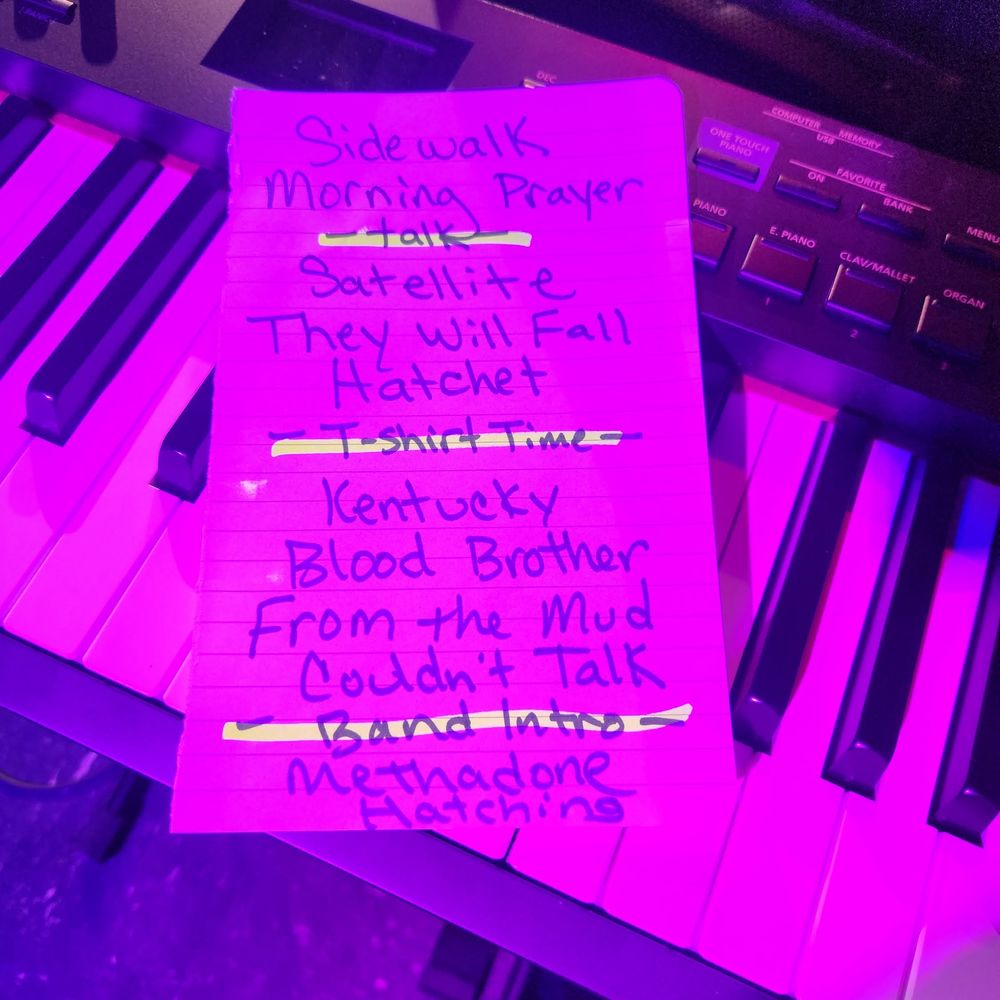 DEC
COMPUTER MEMORY
USB
ONE TOUCH
PIANO
FAVORITE
ON
BANK
MENU
PIANO
E. PIANO
CLAV/MALLET
ORGAN
1
2
Sidewalk
Morning Prayer
- talk -
Satellite
They Will Fall
Hatchet
- T-shirt Time -
Kentucky
Blood Brother
From the Mud
Couldn't Talk
- Band Intro -
Methadone
Hatching